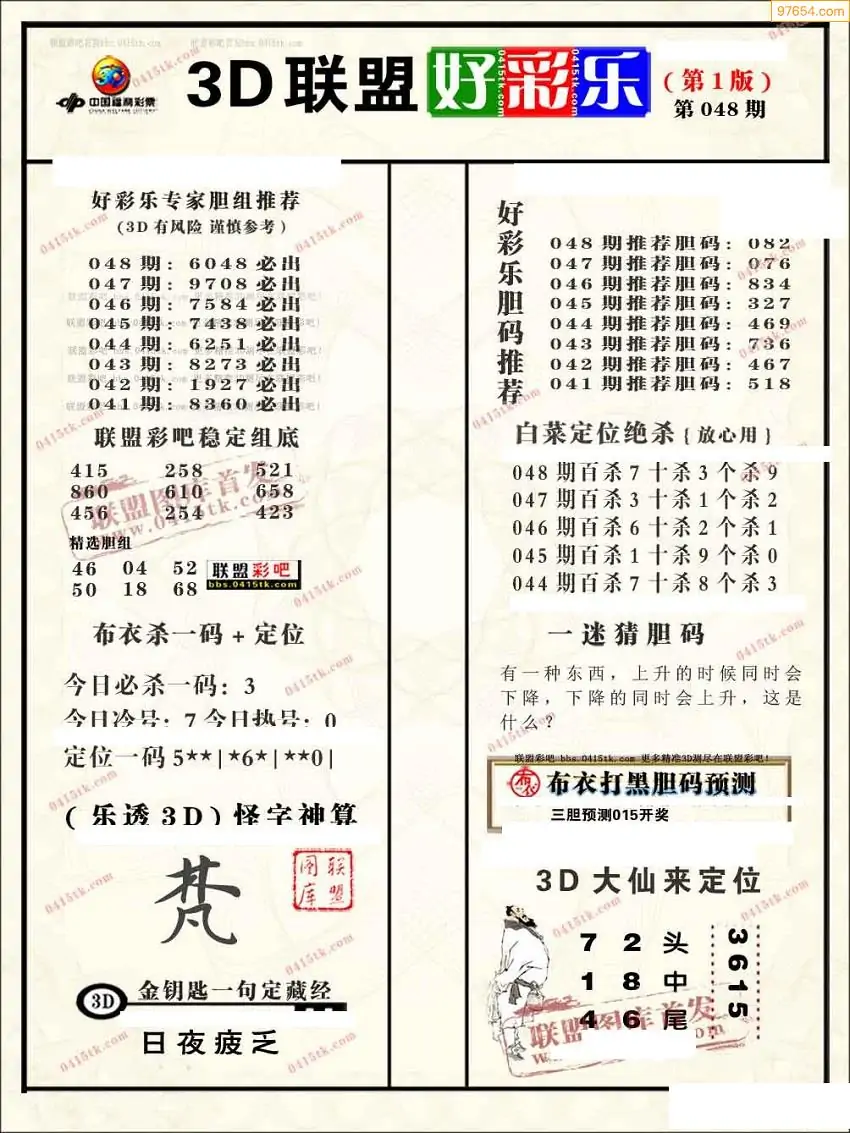 97654.com
中国福利彩票
CHINA WELFARE LOTTERY
3D联盟好彩乐
(第1版)
第048期
好彩乐专家胆组推荐
(3D有风险 谨慎参考)
048期: 6048必出
047期: 9708必出
046期: 7584必出
045期: 7438必出
044期: 6251必出
043期: 8273必出
042期: 1927必出
041期: 8360必出
联盟彩吧稳定组底
415 258 521
860 610 658
456 254 423
精选胆组
46 04 52
50 18 68
联盟彩吧
bbs.0415tk.com
布衣杀一码+定位
今日必杀一码: 3
今日冷号: 7 今日热号: 0
定位一码5**|*6*|**0|
(乐透3D)怪字神算
梵
联盟图库
3D 金钥匙一句定藏经
日夜疲乏
好彩乐胆码推荐
048期推荐胆码: 082
047期推荐胆码: 076
046期推荐胆码: 834
045期推荐胆码: 327
044期推荐胆码: 469
043期推荐胆码: 736
042期推荐胆码: 467
041期推荐胆码: 518
白菜定位绝杀{放心用}
048期百杀7十杀3个杀9
047期百杀3十杀1个杀2
046期百杀6十杀2个杀1
045期百杀1十杀9个杀0
044期百杀7十杀8个杀3
一迷猜胆码
有一种东西，上升的时候同时会
下降，下降的同时会上升，这是
什么？
联盟彩吧 bbs.0415tk.com 更多精准3D测尽在联盟彩吧!
布衣 布衣打黑胆码预测
三胆预测015开奖
3D大仙来定位
7 2 头
1 8 中
4 6 尾
3615
联盟图库首发
www.0415tk.com
0415tk.com